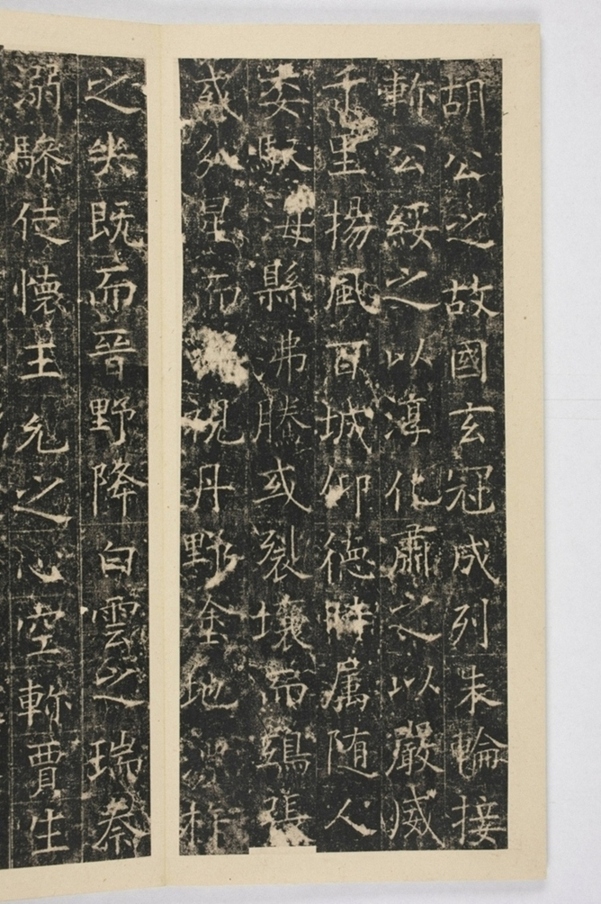 胡公之故國玄冠成列朱輪接
軫公綏之以淳化肅之以嚴威
千里揚風百城仰德時属随人
委馭海縣沸騰或裂壤而鴟張
或分星而視丹野金地
之尖既而晉野降白雲之瑞秦
溺驂徒懷王允之心空軫賈生